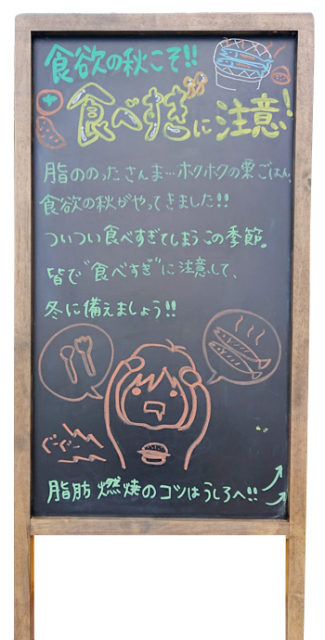 食欲の秋こそ!!
食べすぎに注意!
脂ののったさんま…ホクホクの栗ごはん、
食欲の秋がやってきました!!
ついつい食べすぎてしまうこの季節。
皆で"食べすぎ"に注意して、
冬に備えましょう!!
ぐ〜ぐ〜
脂肪燃焼のコツはうしろへ!!